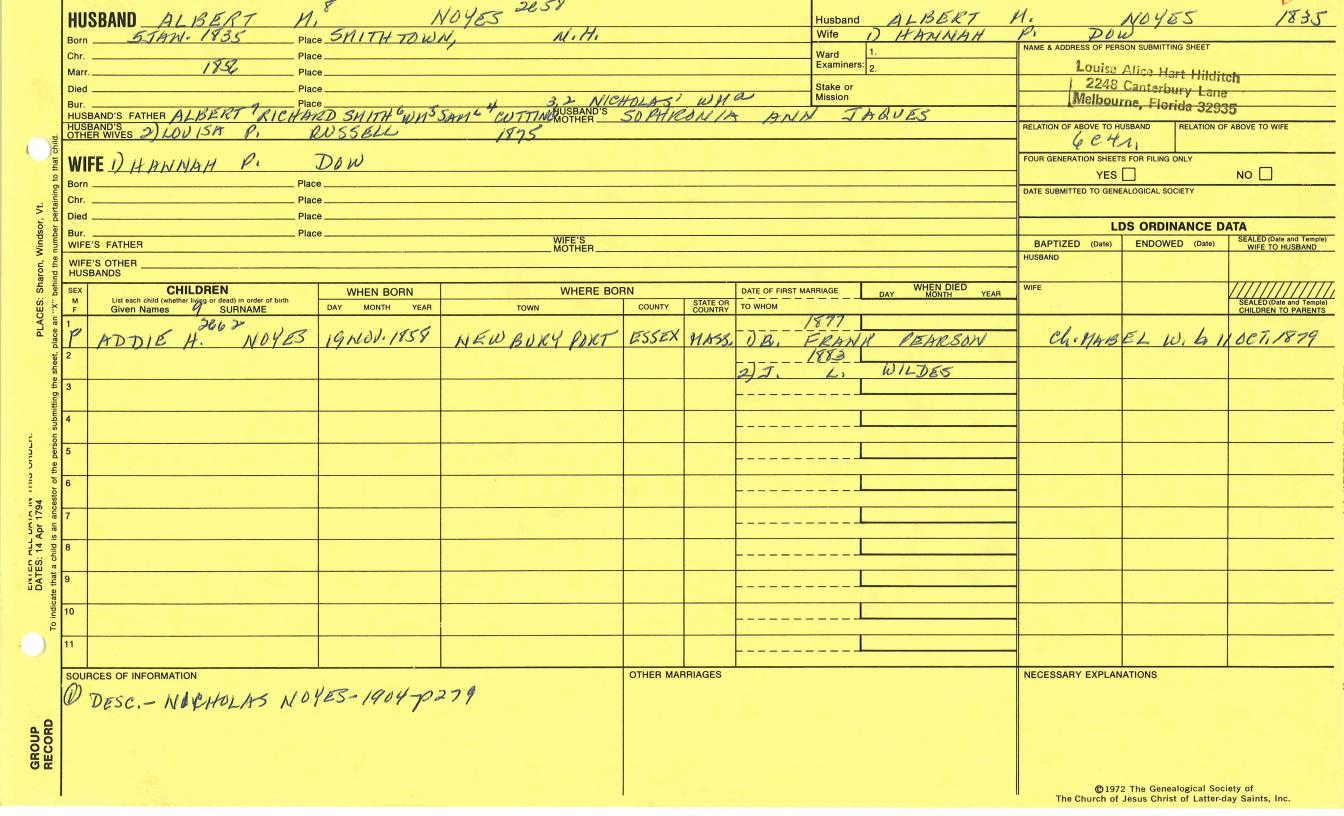 HUSBAND ALBERT M. 8 NOYES 2658
Husband ALBERT M. NOYES 1835
Born 5 JAN. 1835 Place SMITHTOWN, N.H.
Wife 1) HANNAH P. DOW
Chr. Place
Ward Examiners: 1. 2.
NAME & ADDRESS OF PERSON SUBMITTING SHEET
Marr. Place
Louise Alice Hart Hilditch
2248 Canterbury Lane
Melbourne, Florida 32935
Died Place
Stake or Mission
Bur. Place
3, 2 NICHOLAS' WM
HUSBAND'S FATHER ALBERT 7 RICHARD SMITH 6 WM 5 SAM 4 CUTTING
HUSBAND'S MOTHER SOPHRONIA ANN JAQUES
HUSBAND'S OTHER WIVES 2) LOUISA P. RUSSELL 1875
RELATION OF ABOVE TO HUSBAND
RELATION OF ABOVE TO WIFE
WIFE 1) HANNAH P. DOW
FOUR GENERATION SHEETS FOR FILING ONLY
YES NO
Born Place
Chr. Place
DATE SUBMITTED TO GENEALOGICAL SOCIETY
Died Place
Bur. Place
LDS ORDINANCE DATA
WIFE'S FATHER
WIFE'S MOTHER
BAPTIZED (Date) ENDOWED (Date) SEALED (Date and Temple) WIFE TO HUSBAND
WIFE'S OTHER HUSBANDS
HUSBAND
SEX M F
CHILDREN
List each child (whether living or dead) in order of birth
Given Names 9 SURNAME
WHEN BORN
DAY MONTH YEAR
WHERE BORN
TOWN COUNTY STATE OR COUNTRY
DATE OF FIRST MARRIAGE
TO WHOM
WHEN DIED
DAY MONTH YEAR
WIFE
SEALED (Date and Temple) CHILDREN TO PARENTS
1 F ADDIE H. 2662 NOYES 19 NOV. 1858 NEWBURYPORT ESSEX MASS. 1877
1) B. FRANK PEARSON Ch. MABEL W. b 11 OCT. 1879
2 1883
2) J. L. WILDES
3
4
5
6
7
8
9
10
11
SOURCES OF INFORMATION
① DESC.- NICHOLAS NOYES-1904-p279
OTHER MARRIAGES
NECESSARY EXPLANATIONS
©1972 The Genealogical Society of
The Church of Jesus Christ of Latter-day Saints, Inc.
PLACES: Sharon, Windsor, Vt.
ENTER ALL DATA IN THIS ORDER:
DATES: 14 Apr 1794
To indicate that a child is an ancestor of the person submitting the sheet, place an "X" behind the number pertaining to that child.
GROUP
RECORD